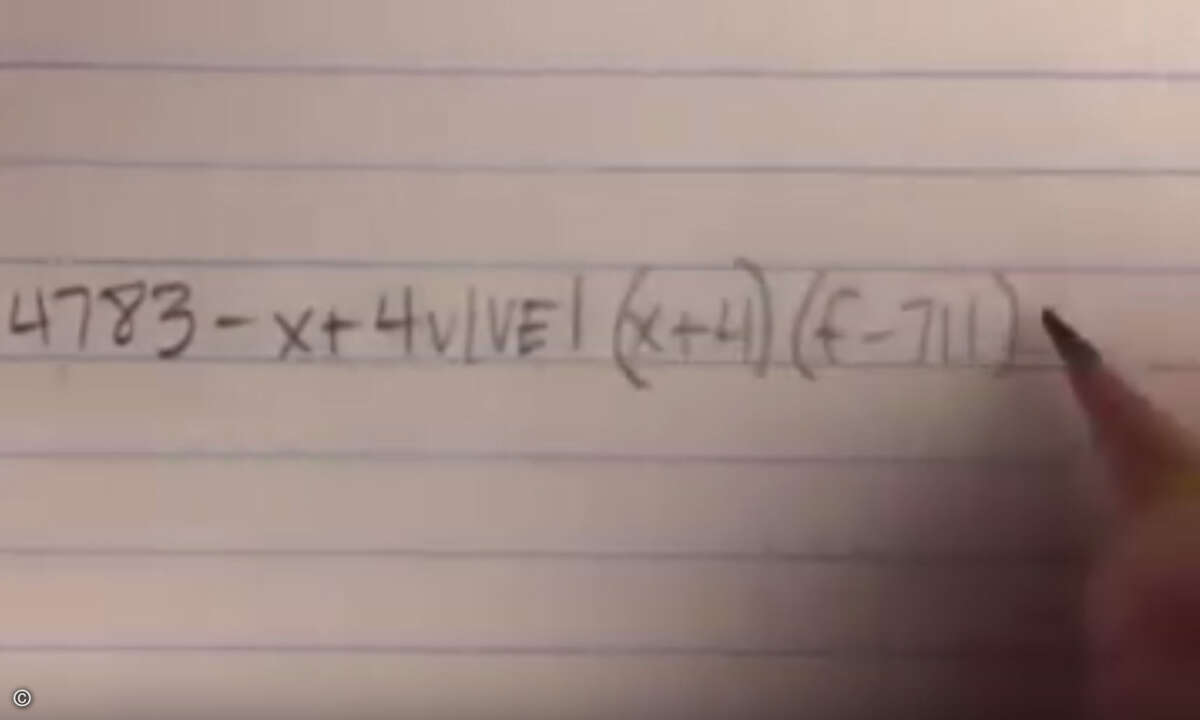 4783 - x + 4v|VE| (x+4) (f-711)
©